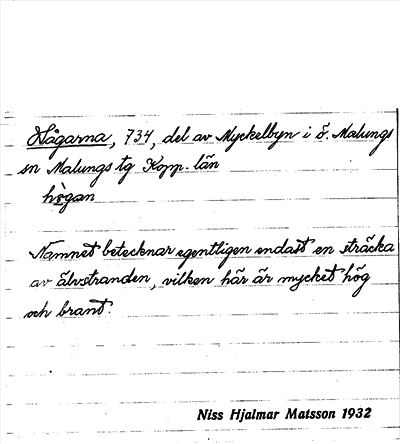 Högarna, 734, del av Myckelbyn i ö. Malungs
sn Malungs tg Kopp. län
hògan
Namnet betecknar egentligen endast en sträcka
av älvstranden, vilken här är mycket hög
och brant.
Niss Hjalmar Matsson 1932